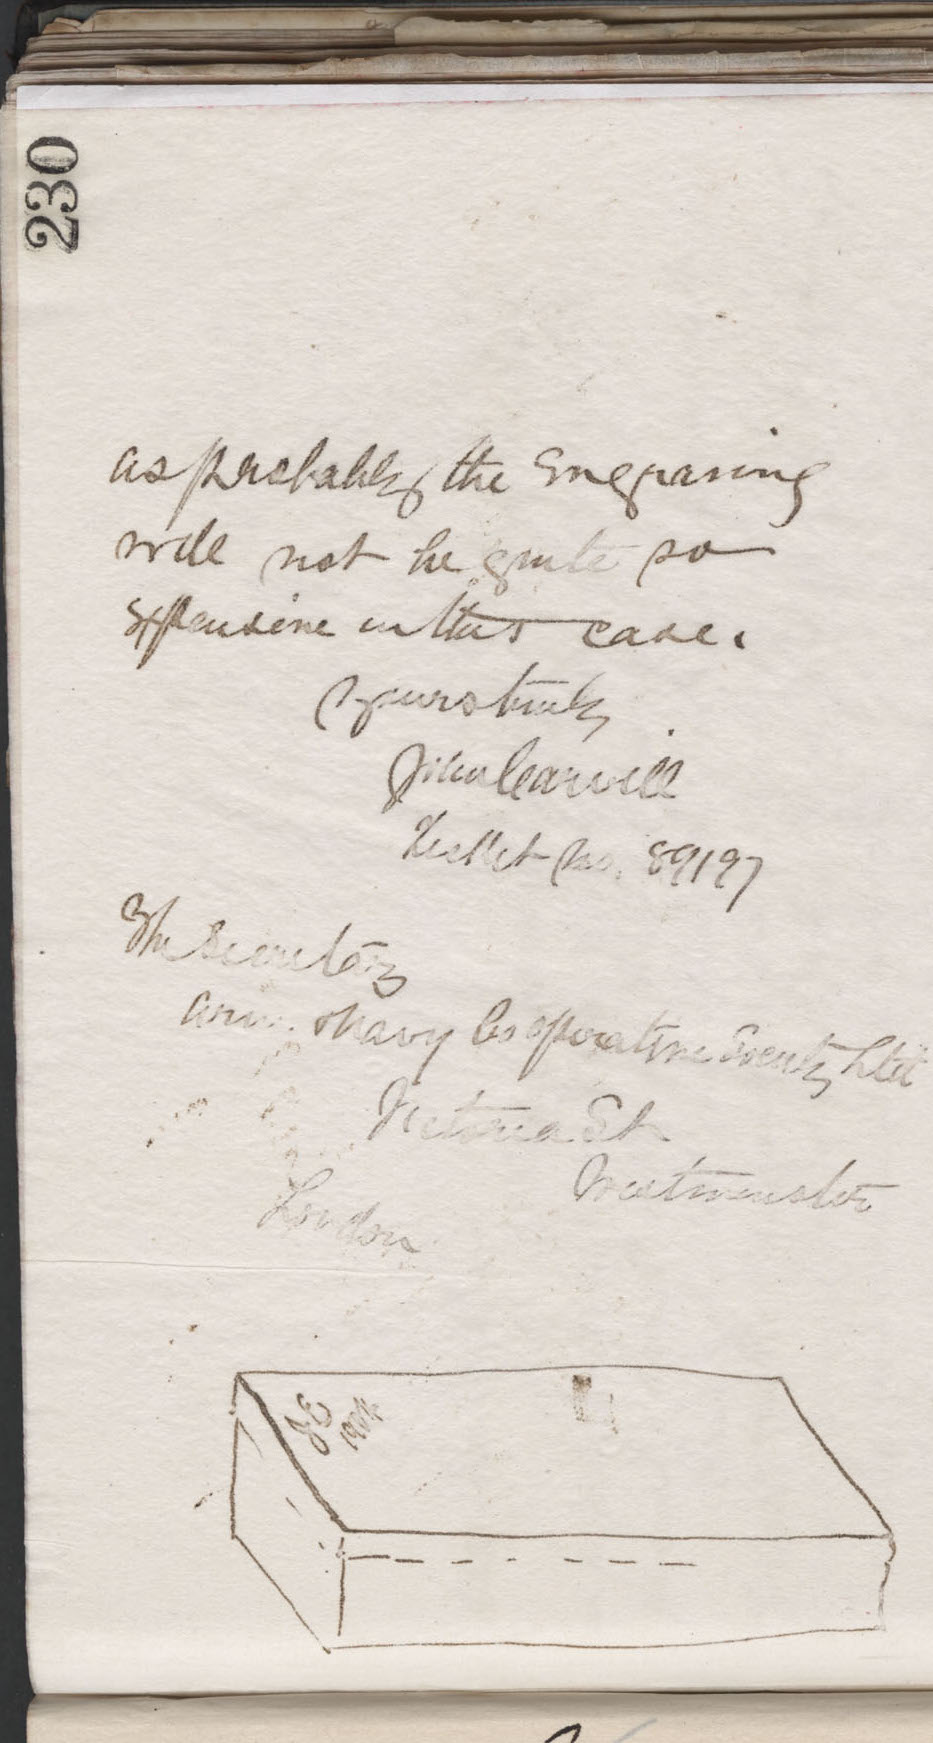 230
as probably the Engraving
will not be quite so
Expensive in this case.
Yours truly
John Carvill
Ticket No. 89197
The Secretary
Army & Navy Co operative Society Ltd
Victoria St
Westminster
London
1904